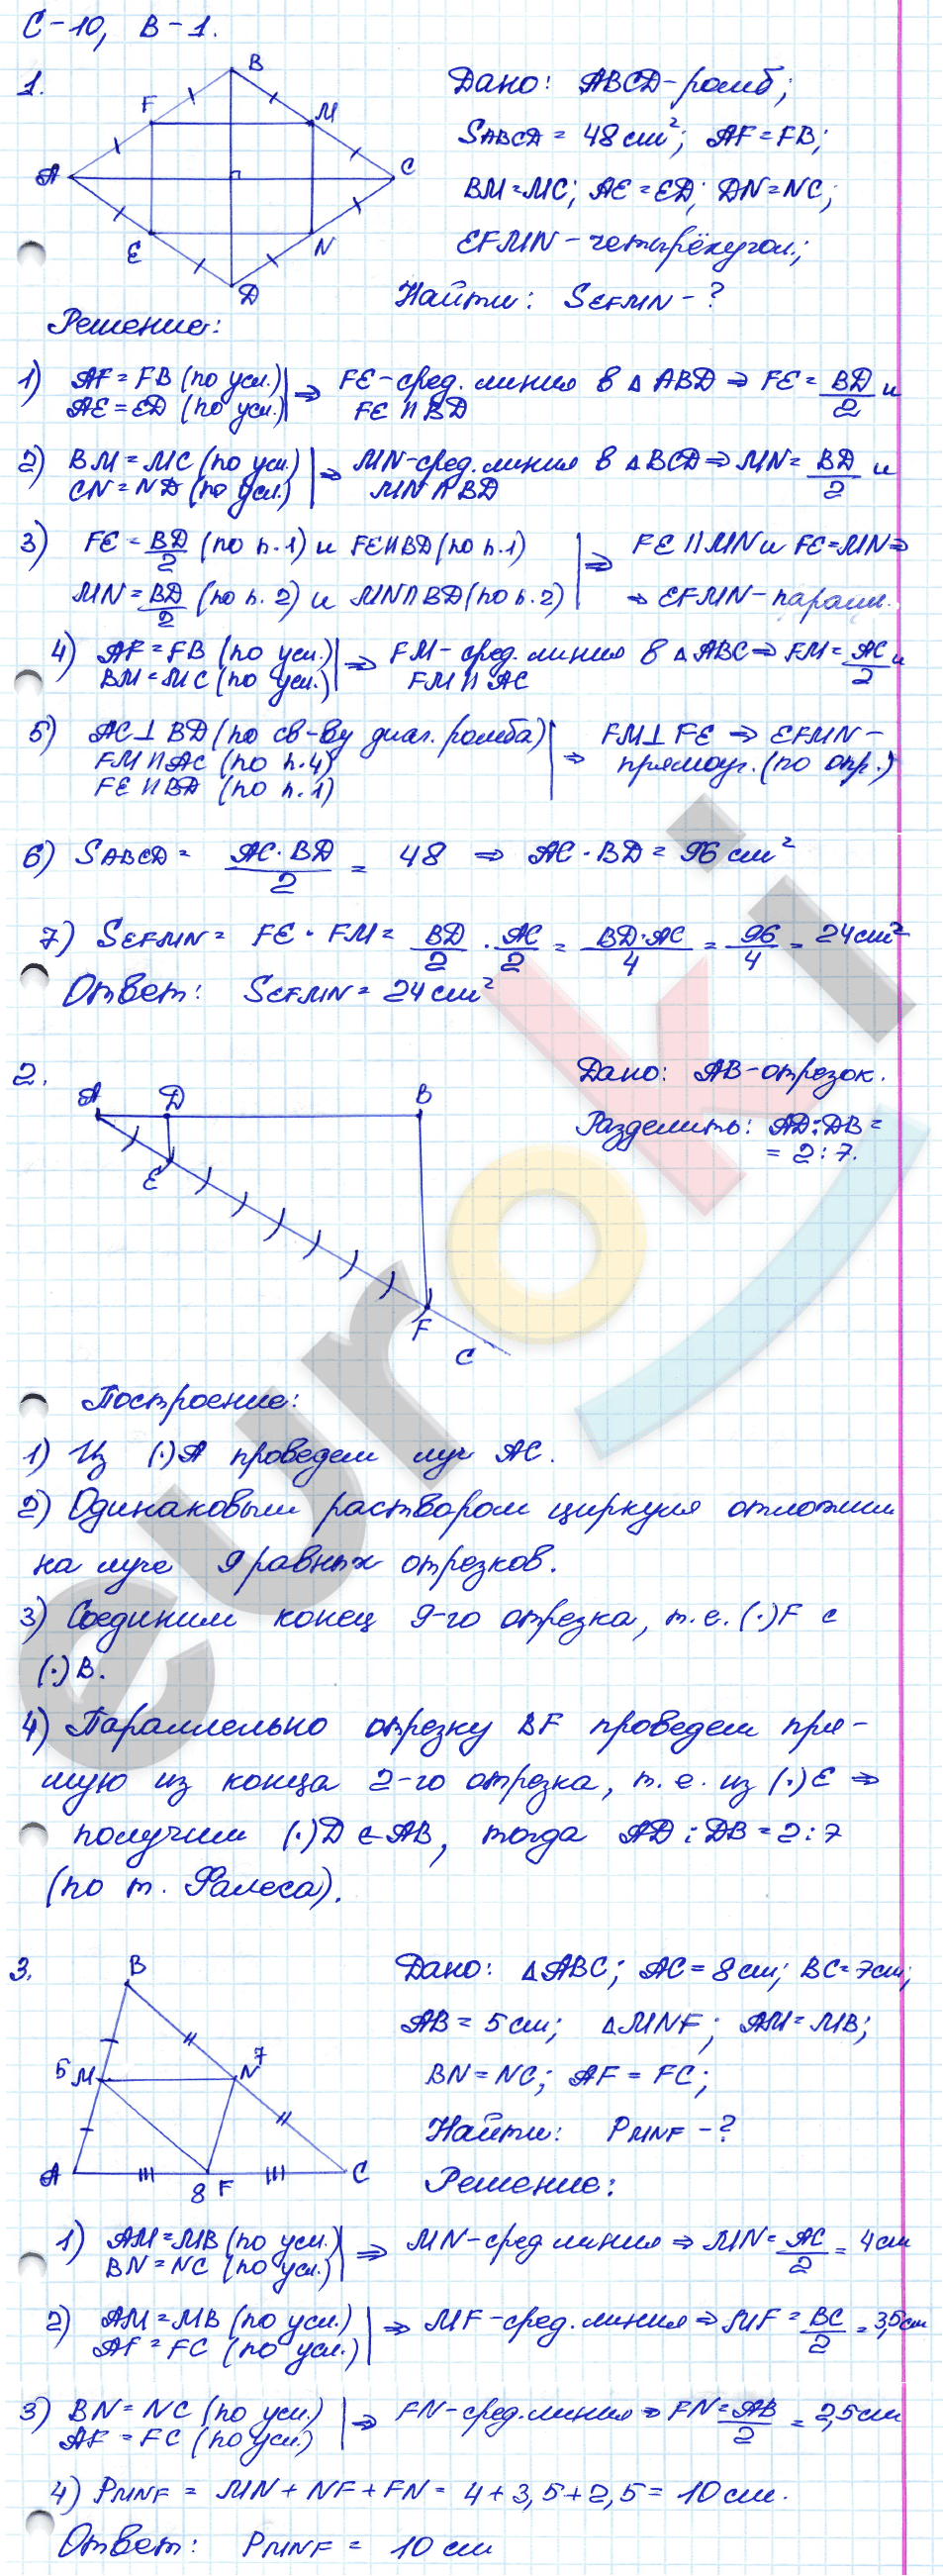 С-10, В-1.
1.
B
F
M
A
C
E
N
D
Дано: ABCD-ромб;
SABCD = 48 см²; AF=FB;
BM=MC; AE=ED; DN=NC;
EFMN-четырёхугол.;
Найти: SEFMN-?
Решение:
1) AF=FB (по усл.) | ⇒ FE-сред. линия в △ ABD ⇒ FE = BD/2 и
AE=ED (по усл.) | FE ∥ BD
2) BM=MC (по усл.) | ⇒ MN-сред. линия в △BCD ⇒ MN = BD/2 и
CN=ND (по усл.) | MN ∥ BD
3) FE = BD/2 (по п.1) и FE∥BD (по п.1) | ⇒ FE ∥ MN и FE=MN ⇒
MN = BD/2 (по п. 2) и MN∥BD (по п.2) | ⇒ EFMN-паралл.
4) AF=FB (по усл.) | ⇒ FM-сред. линия в △ABC ⇒ FM = AC/2 и
BM=MC (по усл.) | FM ∥ AC
5) AC⊥BD (по св-ву диаг. ромба) | ⇒ FM⊥FE ⇒ EFMN-
FM∥AC (по п.4) | прямоуг. (по опр.)
FE∥BD (по п.1)
6) SABCD = AC·BD/2 = 48 ⇒ AC·BD = 96 см²
7) SEFMN = FE · FM = BD/2 · AC/2 = BD·AC/4 = 96/4 = 24 см²
Ответ: SEFMN = 24 см²
2.
A D B
E
F
C
Дано: AB-отрезок.
Разделить: AD:DB =
= 2:7.
Построение:
1) Из (·)A проведем луч AC.
2) Одинаковым раствором циркуля отложим
на луче 9 равных отрезков.
3) Соединим конец 9-го отрезка, т.е. (·)F с
(·)B.
4) Параллельно отрезку BF проведем пря-
мую из конца 2-го отрезка, т.е. из (·)E ⇒
получим (·)D ∈ AB, тогда AD:DB=2:7
(по т. Фалеса).
3.
B
5 M
N 7
A
8 F
C
Дано: △ABC; AC=8см; BC=7см;
AB=5см; △MNF; AM=MB;
BN=NC; AF=FC;
Найти: PMNF-?
Решение:
1) AM=MB (по усл.) | ⇒ MN-сред линия ⇒ MN = AC/2 = 4см
BN=NC (по усл.) |
2) AM=MB (по усл.) | ⇒ MF-сред. линия ⇒ MF = BC/2 = 3,5см
AF=FC (по усл.) |
3) BN=NC (по усл.) | ⇒ FN-сред. линия ⇒ FN = AB/2 = 2,5см
AF=FC (по усл.) |
4) PMNF = MN+NF+FN = 4+3,5+2,5 = 10см.
Ответ: PMNF = 10 см
euroki